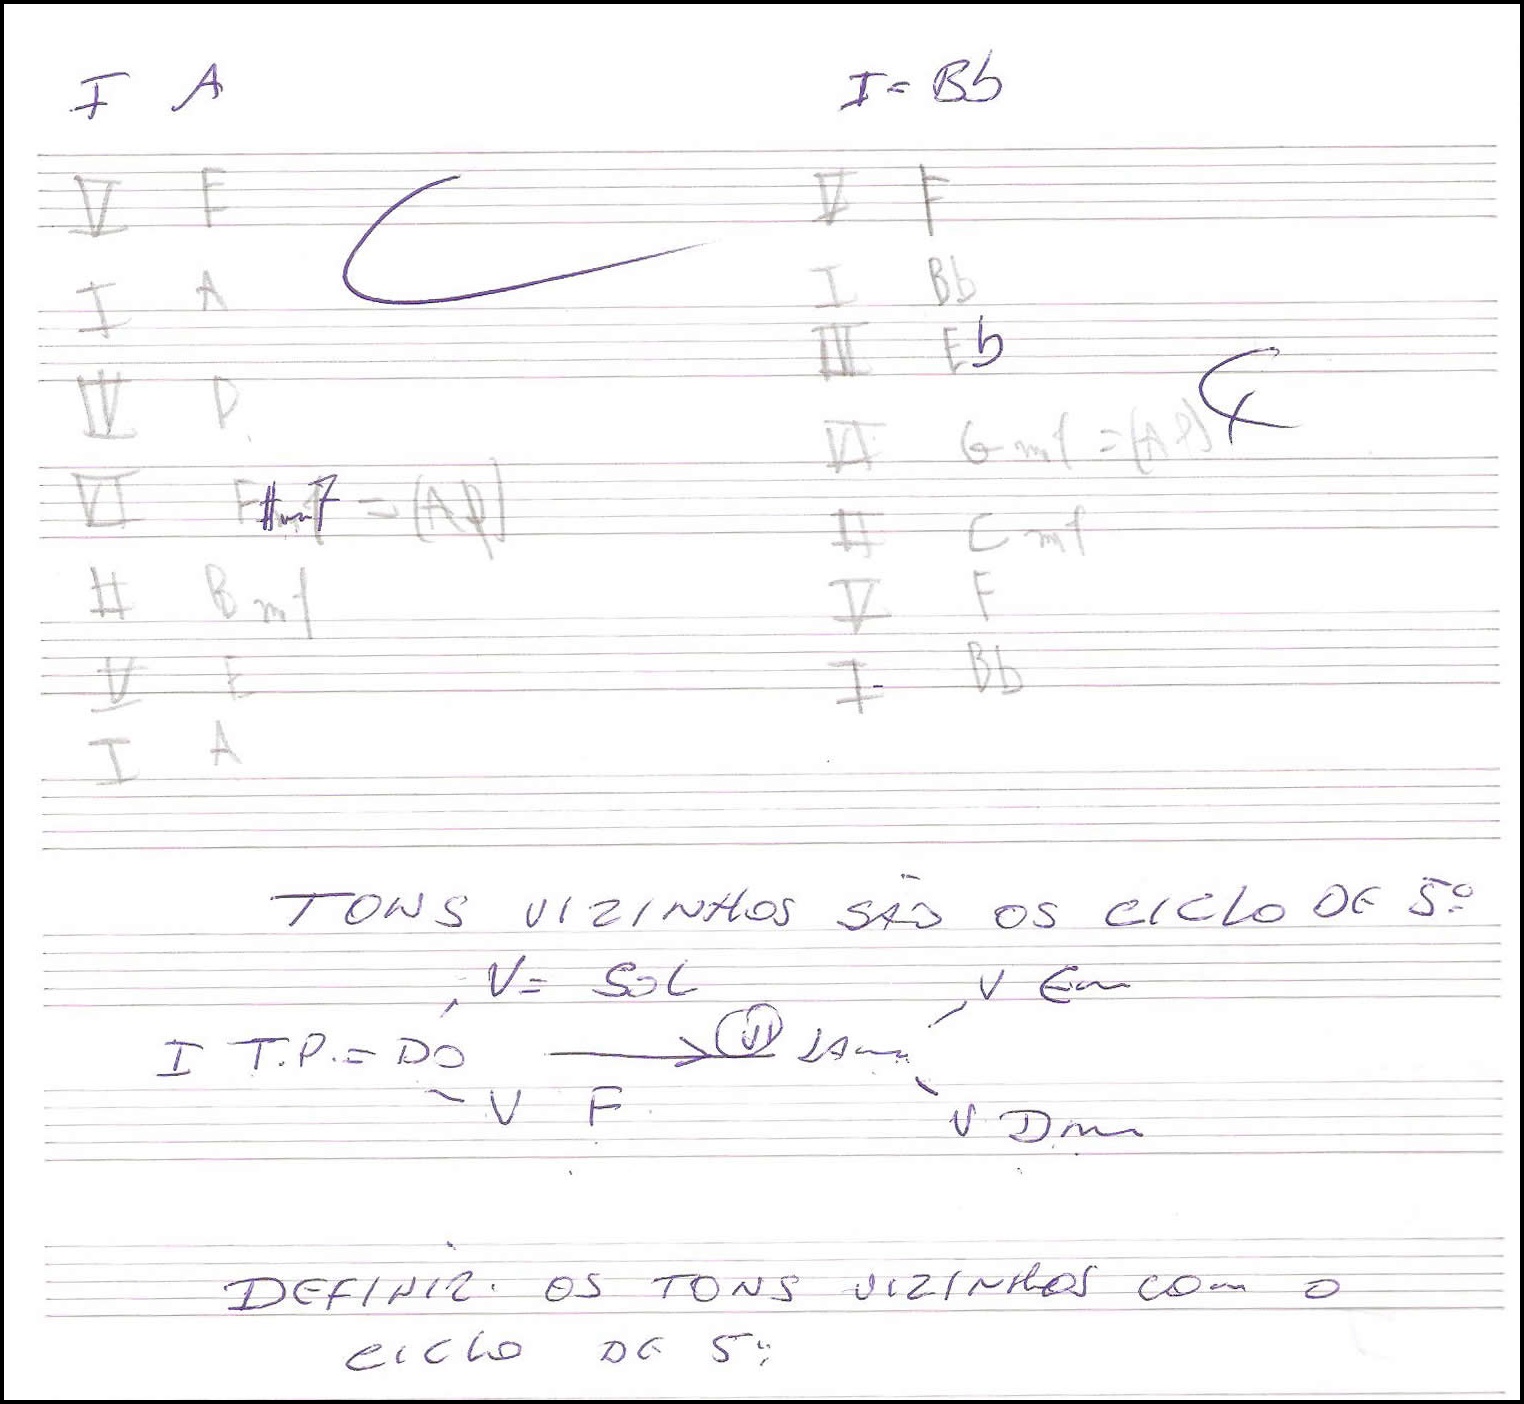 I A
V E
I A
IV D
VI F#m7 = (AP)
II Bm7
V E
I A
I = Bb
V F
I Bb
III Eb
VI Gm7 = (AP)
II Cm7
V F
I Bb
TONS VIZINHOS SÃO OS CICLO DE 5º
V = SOL
V Em
I T.P. = DO
VI LAm
V F
V Dm
DEFINIR. OS TONS VIZINHOS COM O
CICLO DE 5º